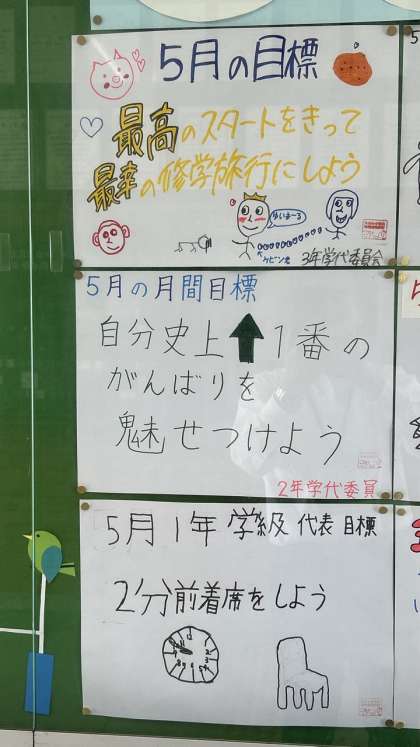 5月の目標
最高のスタートをきって
最幸の修学旅行にしよう
ゆいまーる
3年学代委員会
5月の月間目標
自分史上⬆1番の
がんばりを
魅せつけよう
2年学代委員
5月1年 学級 代表 目標
2分前着席をしよう